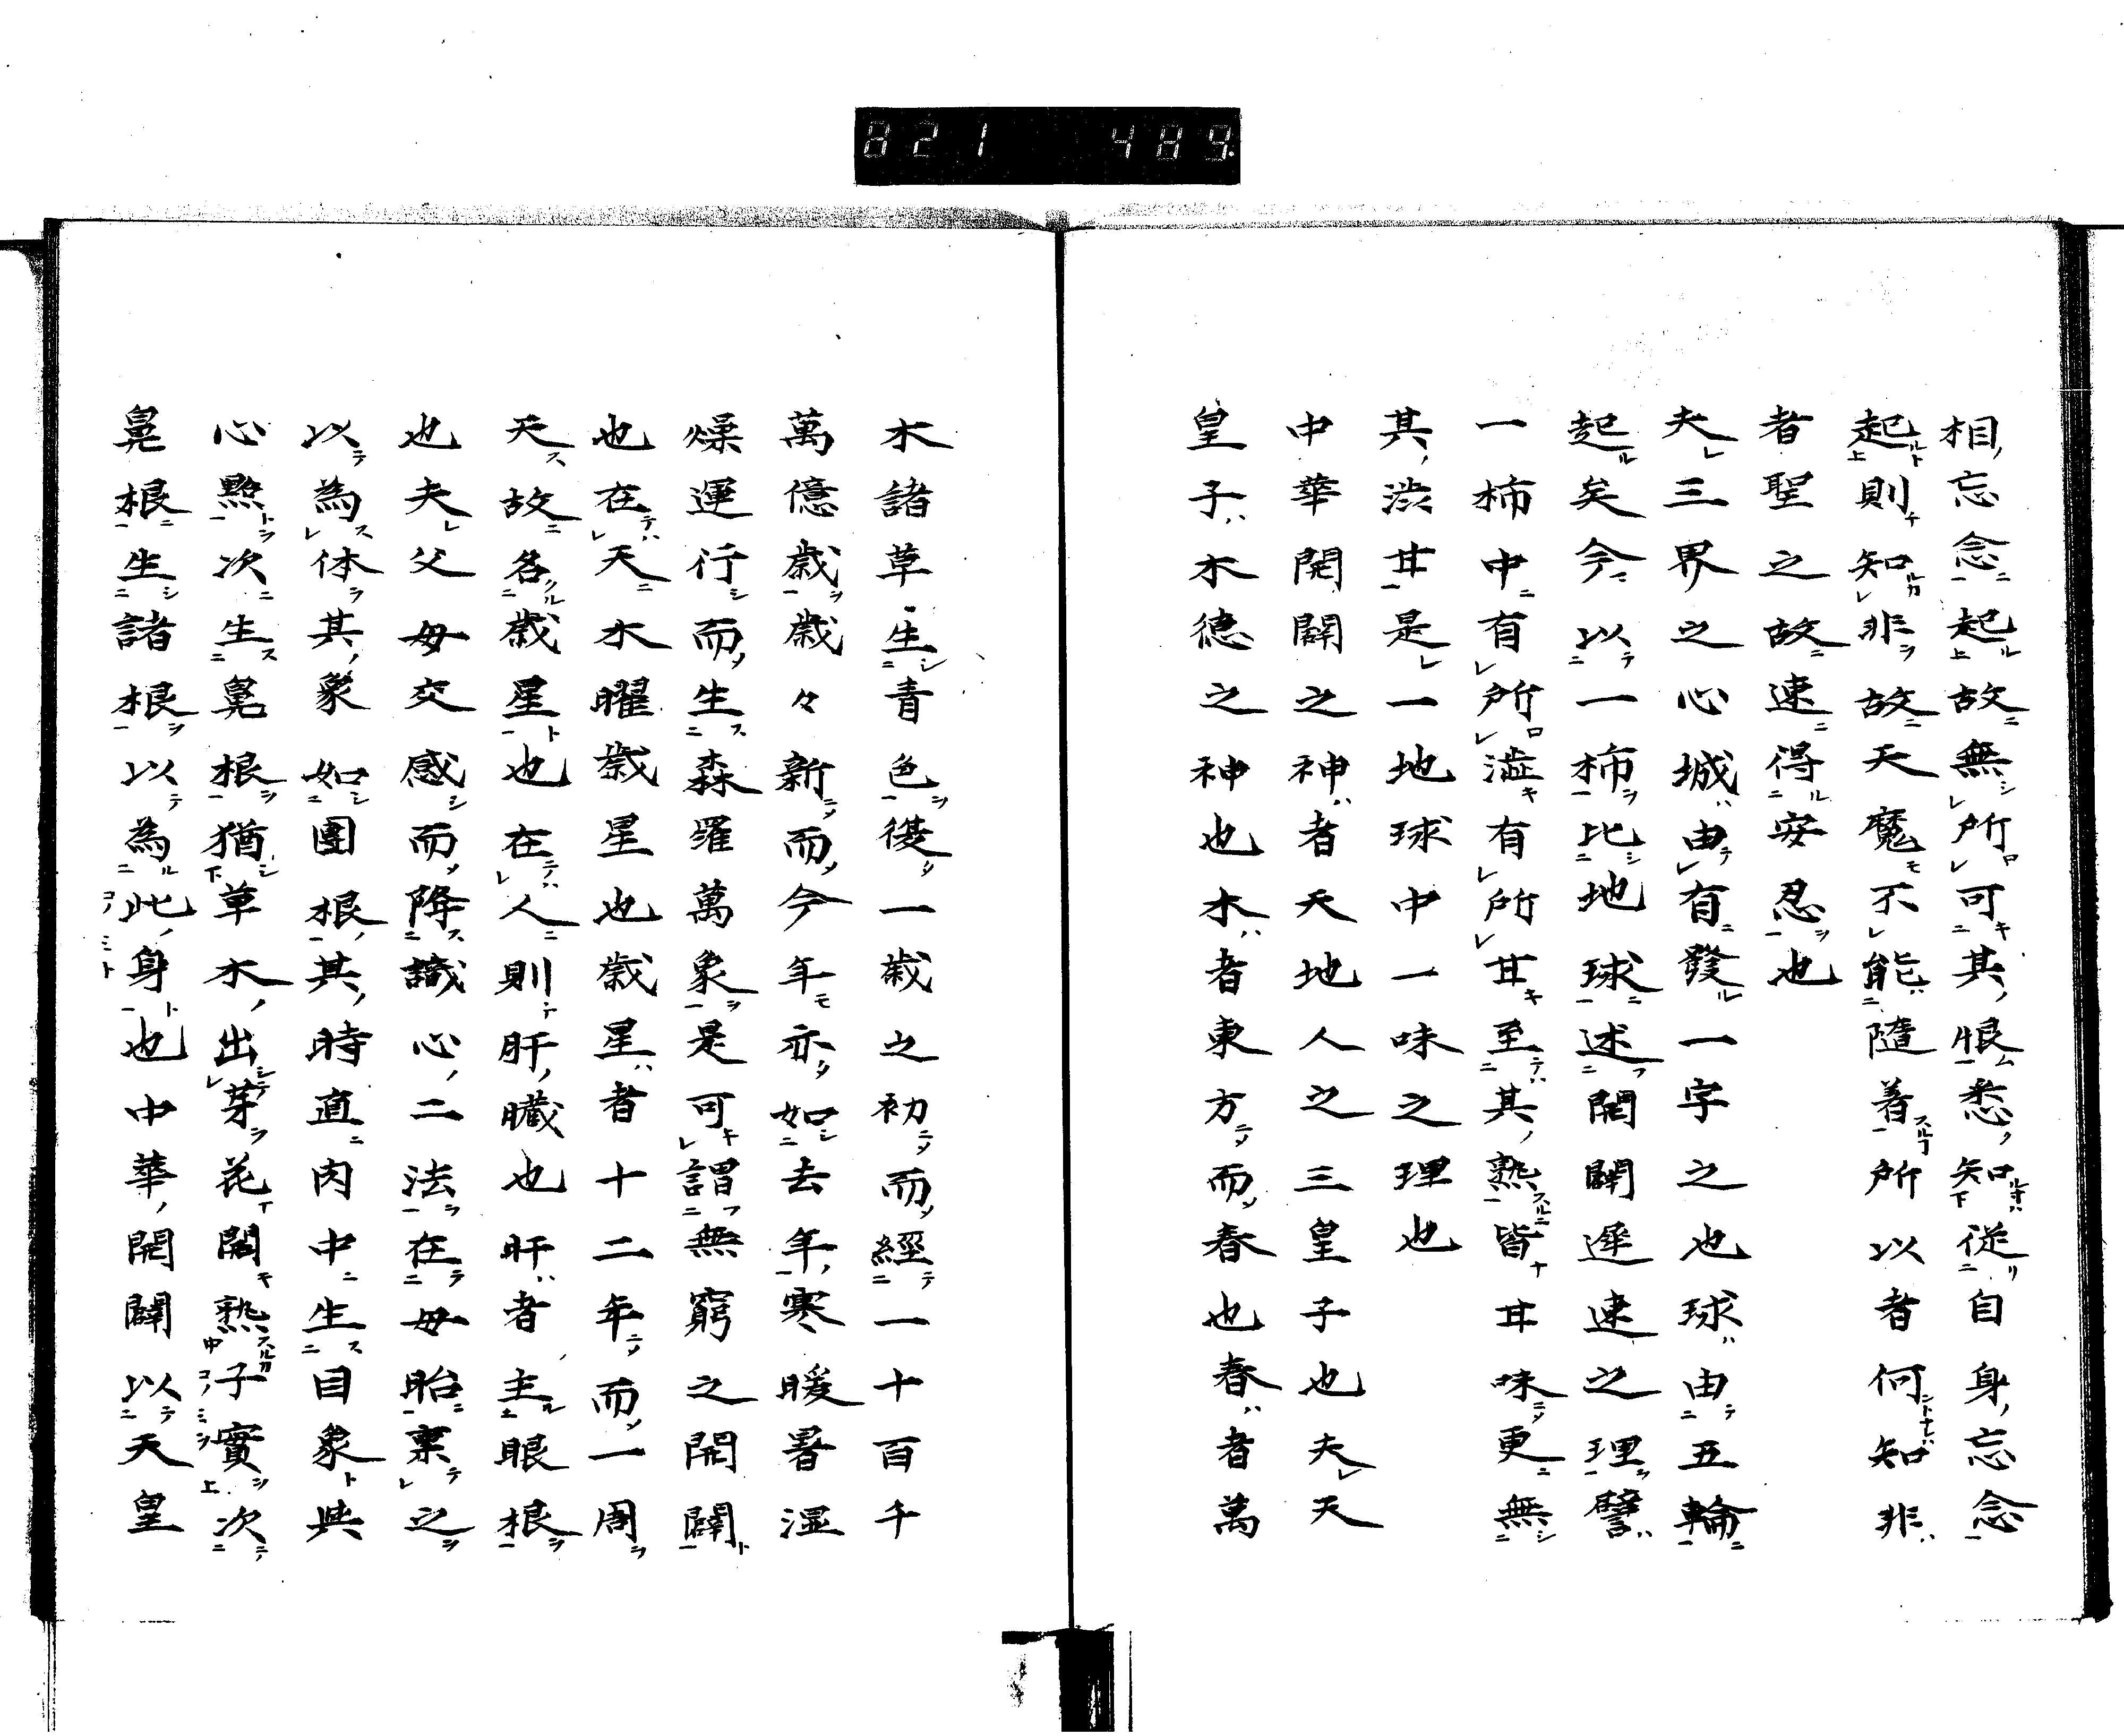 821 489
相忘念起故無所可其恨悉知従自身忘念
起則知非故天魔不能隨着所以者何知非
者聖之故速得安忍也
夫三界之心城由有發一字之也球由五輪
起矣今以一柿比地球述開闢遲速之理譬
一柿中有所澁有所甘至其熟皆甘味更無
其渋甘是一地球中一味之理也
中華開闢之神者天地人之三皇子也夫天
皇子木德之神也木者東方而春也春者萬
木諸草生青色後一歳之初而經一十百千
萬億歳歳々新而今年亦如去年寒暖暑湿
燥運行而生森羅萬象是可謂無窮之開闢
也在天木曜歳星也歳星者十二年而一周
天故各歳星也在人則肝臓也肝者主眼根
也夫父母交感而降識心二法在母胎稟之
以為体其象如團根其時直肉中生目象與
心點次生鼻根猶草木出芽花開熟子實次
鼻根生諸根以為此身也中華開闢以天皇